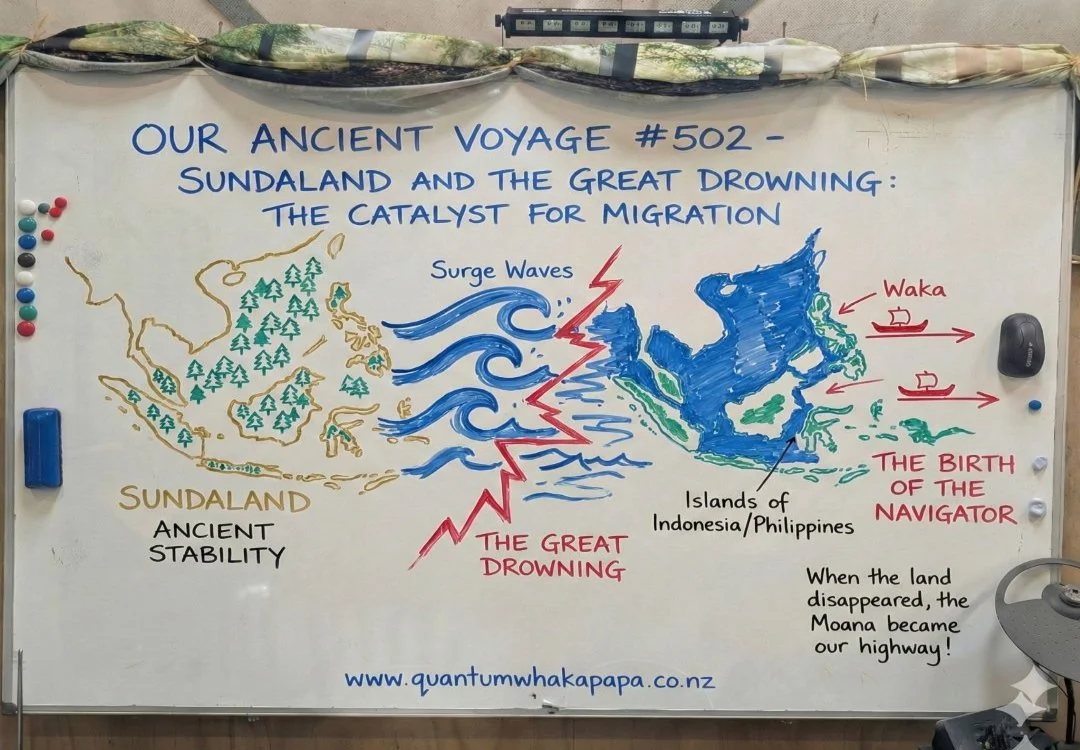 OUR ANCIENT VOYAGE #502 -
SUNDALAND AND THE GREAT DROWNING:
THE CATALYST FOR MIGRATION
Surge Waves
Waka
SUNDALAND
ANCIENT
STABILITY
THE GREAT
DROWNING
Islands of
Indonesia/Philippines
THE BIRTH
OF THE
NAVIGATOR
When the land
disappeared, the
Moana became
our highway!
www.quantumwhakapapa.co.nz